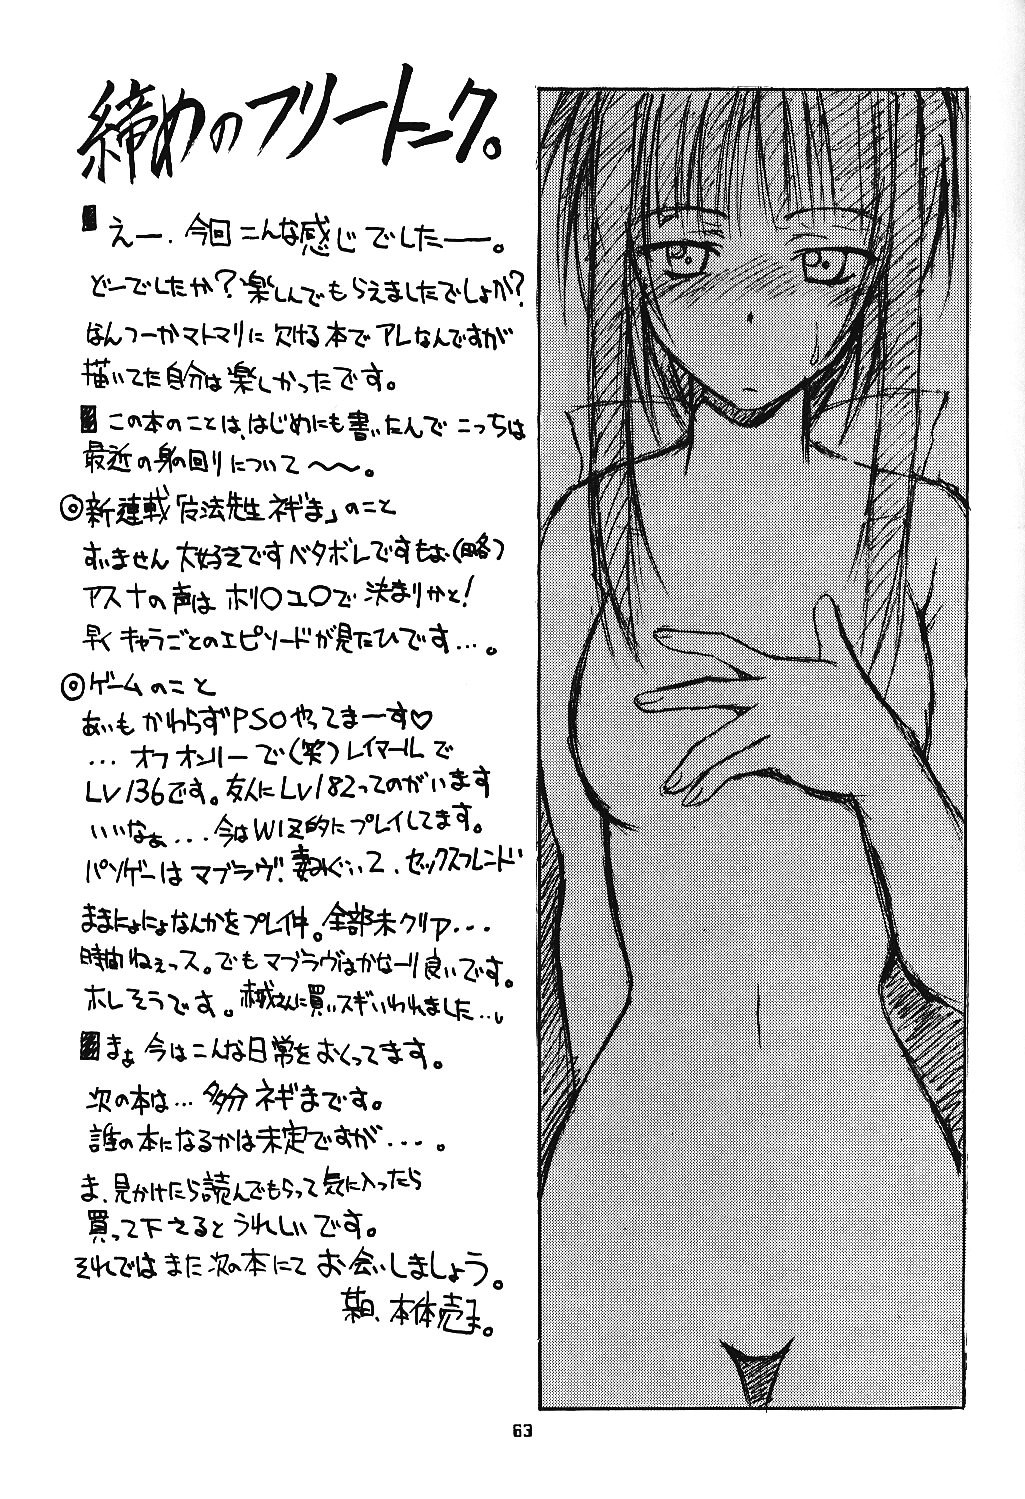 締めのフリートーク。
えー、今回こんな感じでしたー。
どーでしたか?楽しんでもらえましたでしょか?
なんつーかマトマリに欠ける本でアレなんですが
描いてた自分は楽しかったです。
この本のことは、はじめにも書いたんでこっちは
最近の身の回りについて〜〜。
◎新連載「魔法先生ネギま」のこと
すいません大好きですベタボレですもぉ(略)
アスナの声はホリ〇ユ〇で決まりかと!
早くキャラごとのエピソードが見たひです…。
◎ゲームのこと
あいもかわらずPSOやってまーす♡
…オフオンリーで(笑)レイマールで
LV136です。友人にLV182ってのがいます
いいなぁ...今はWIZ的にプレイしてます。
パソゲーはマブラヴ、妻みぐい2、セックスフレンド
ままにょにょなんかをプレイ中。全部未クリア...
時間ねぇっス。でもマブラヴはかなーり良いです。
ホレそうです。さんに買いスギいわれました...。
まぁ今はこんな日常をおくってます。
次の本は…多分ネギまです。
誰の本になるかは未定ですが...。
ま、見かけたら読んでもらって気に入ったら
買って下さるとうれしいです。
それではまた次の本にてお会いしましょう。
某日、本体の壱ま。
63